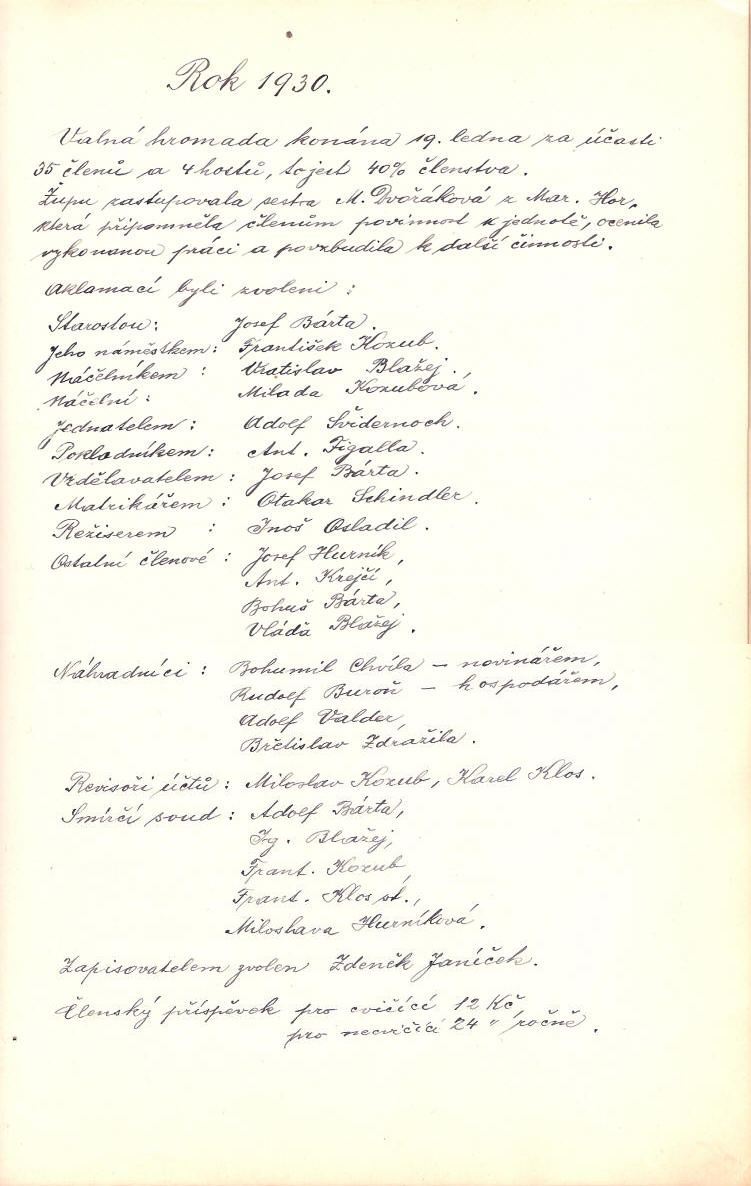 Rok 1930.
Valná hromada konána 19. ledna za účasti
35 členů a 4 hostů, to jest 40% členstva.
Župu zastupovala sestra M. Dvořáková z Mar. Hor,
která připomněla členům povinnost k jednotě, ocenila
vykonanou práci a povzbudila k další činnosti.
Aklamací byli zvoleni :
Starostou: Josef Bárta.
Jeho náměstkem: František Kozub.
Náčelníkem : Vratislav Blažej.
Náčelní : Milada Kozubová.
Jednatelem : Adolf Švidernoch.
Pokladníkem: Ant. Figalla.
Vzdělavatelem : Josef Bárta.
Matrikářem : Otakar Schindler.
Režiserem : Inoš Osladil.
Ostatní členové : Josef Hurník,
Ant. Krejčí,
Bohuš Bárta,
Vláďa Blažej.
Náhradníci : Bohumil Chvíla – novinářem,
Rudolf Buroň – hospodářem,
Adolf Valder,
Břetislav Zdražila.
Revisoři účtů : Miloslav Kozub, Karel Klos.
Smírčí soud : Adolf Bárta,
Ig. Blažej,
Frant. Kozub,
Frant. Klos st.,
Miloslava Hurníková.
Zapisovatelem zvolen Zdeněk Janíček.
Členský příspěvek pro cvičící 12 Kč,
pro necvičící 24 " ročně.